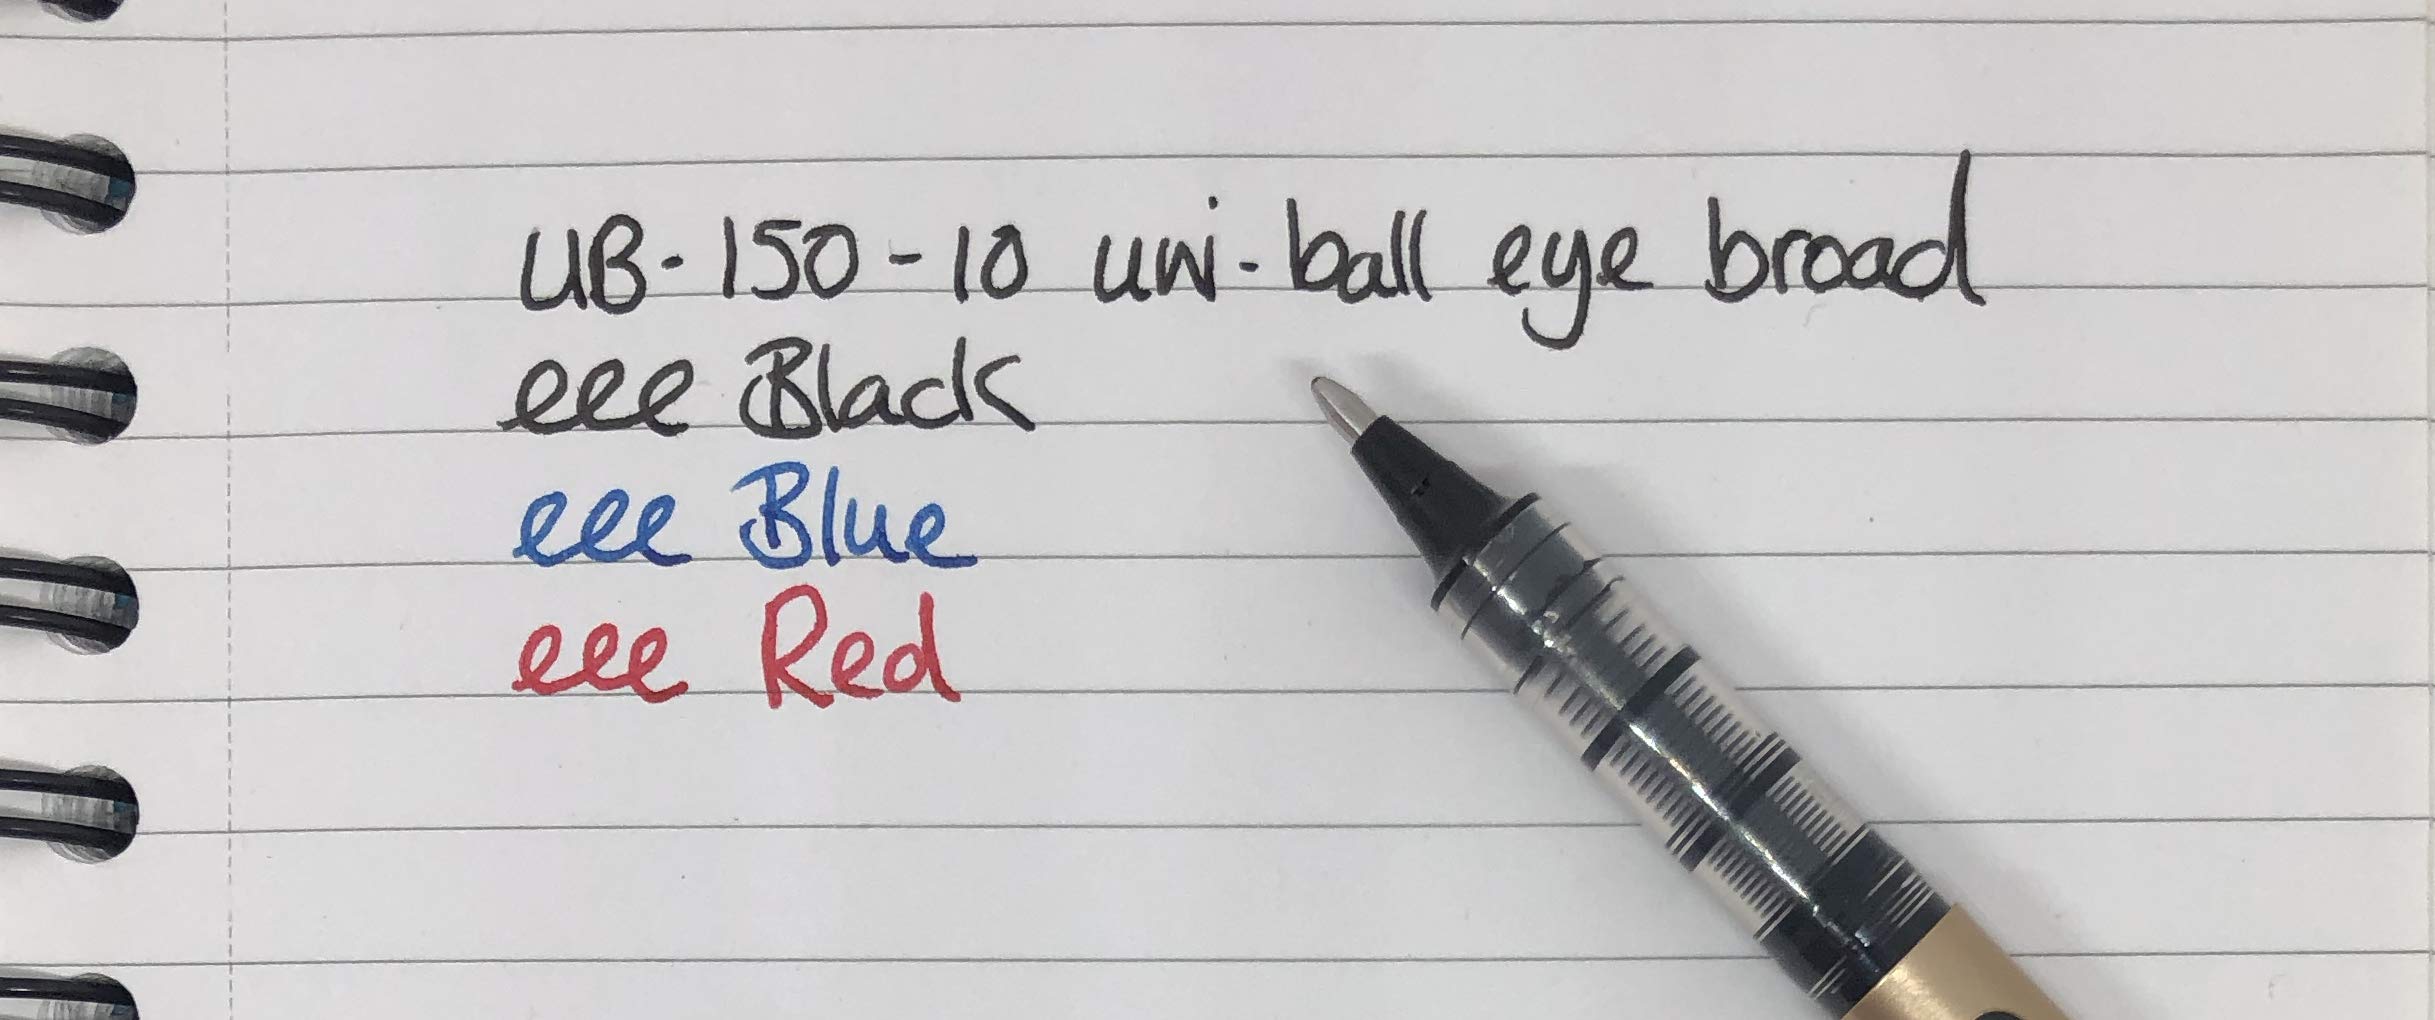 UB-150-10 uni-ball eye broad
eee Black
eee Blue
eee Red